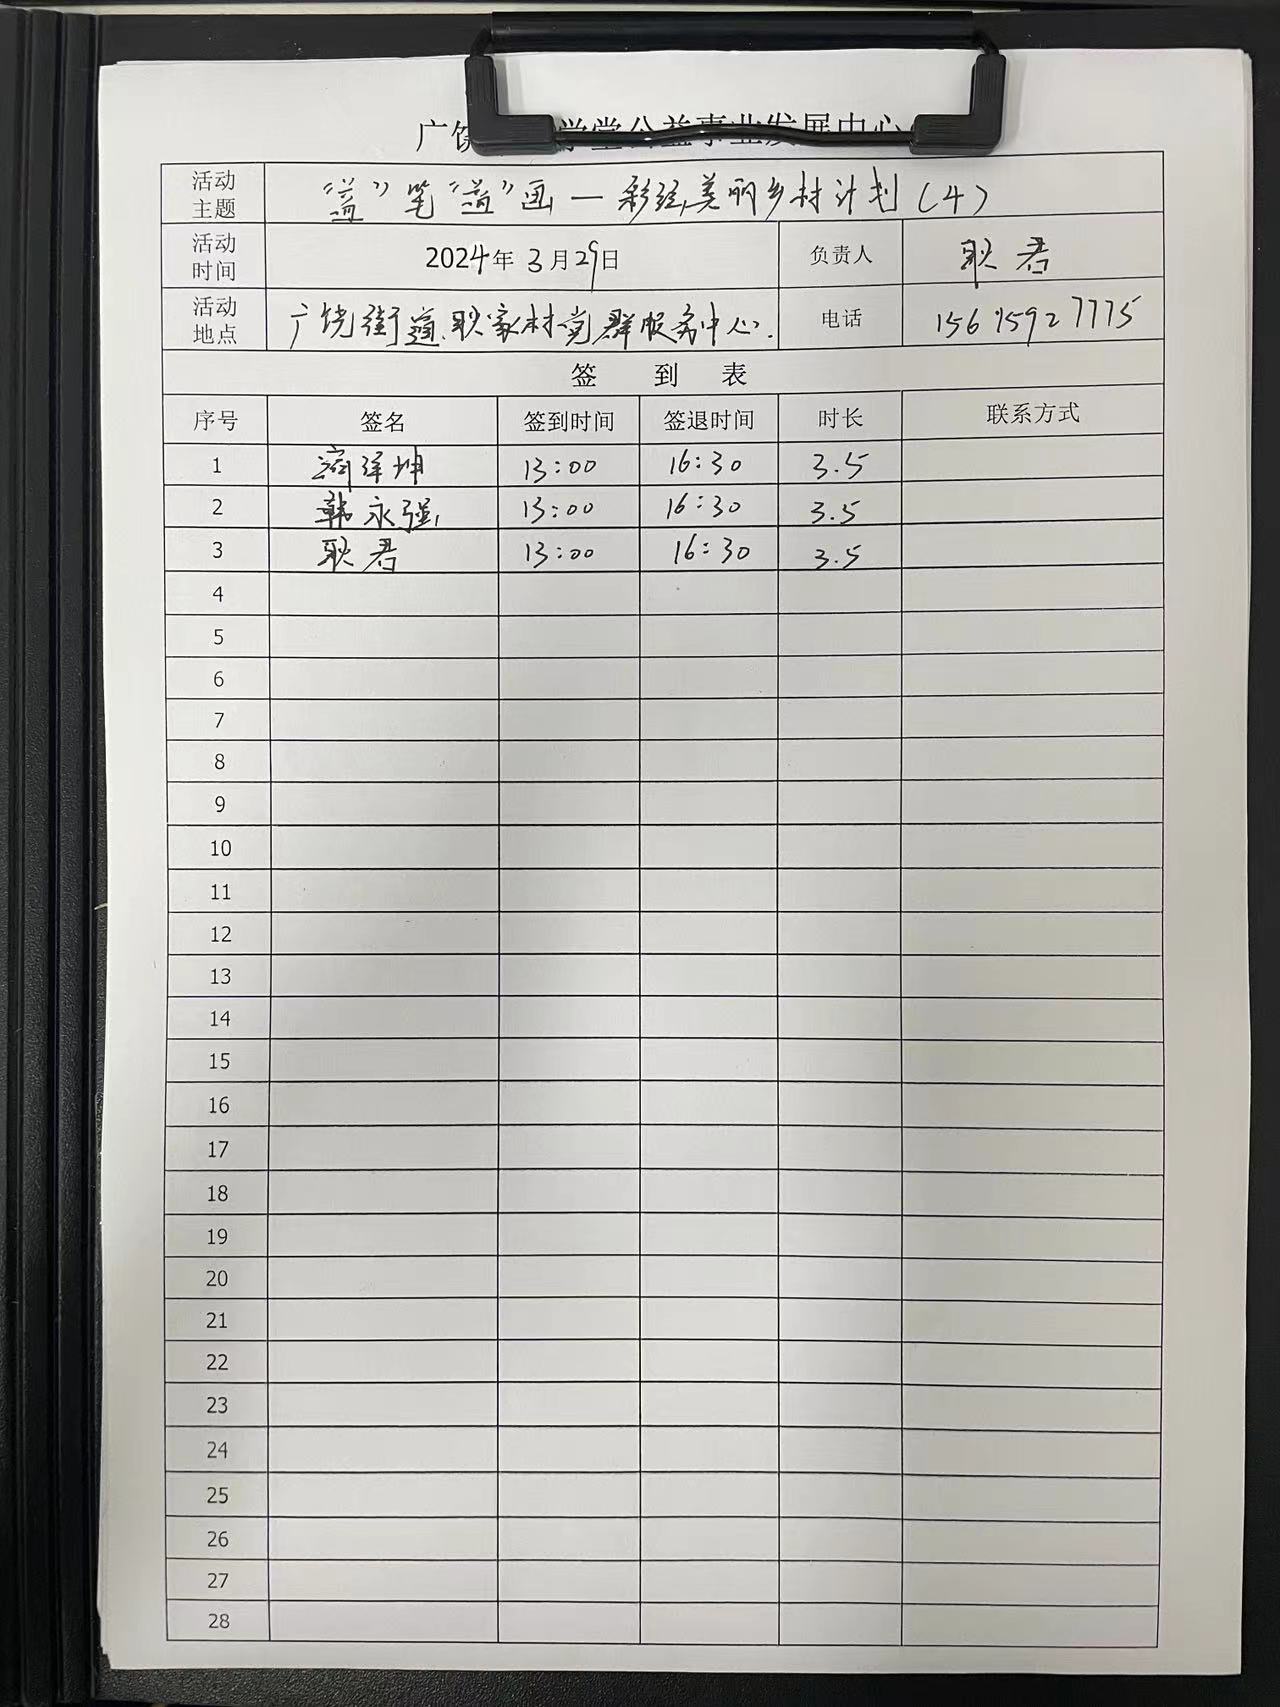 广饶 学堂公益事业发展中心
活动主题 “益”笔“益”画—彩绘美丽乡村计划(4)
活动时间 2024年3月29日 负责人 耿君
活动地点 广饶街道耿家村党群服务中心. 电话 15615927775
签 到 表
序号 签名 签到时间 签退时间 时长 联系方式
1 坤 13:00 16:30 3.5
2 韩永强 13:00 16:30 3.5
3 耿君 13:00 16:30 3.5
4
5
6
7
8
9
10
11
12
13
14
15
16
17
18
19
20
21
22
23
24
25
26
27
28